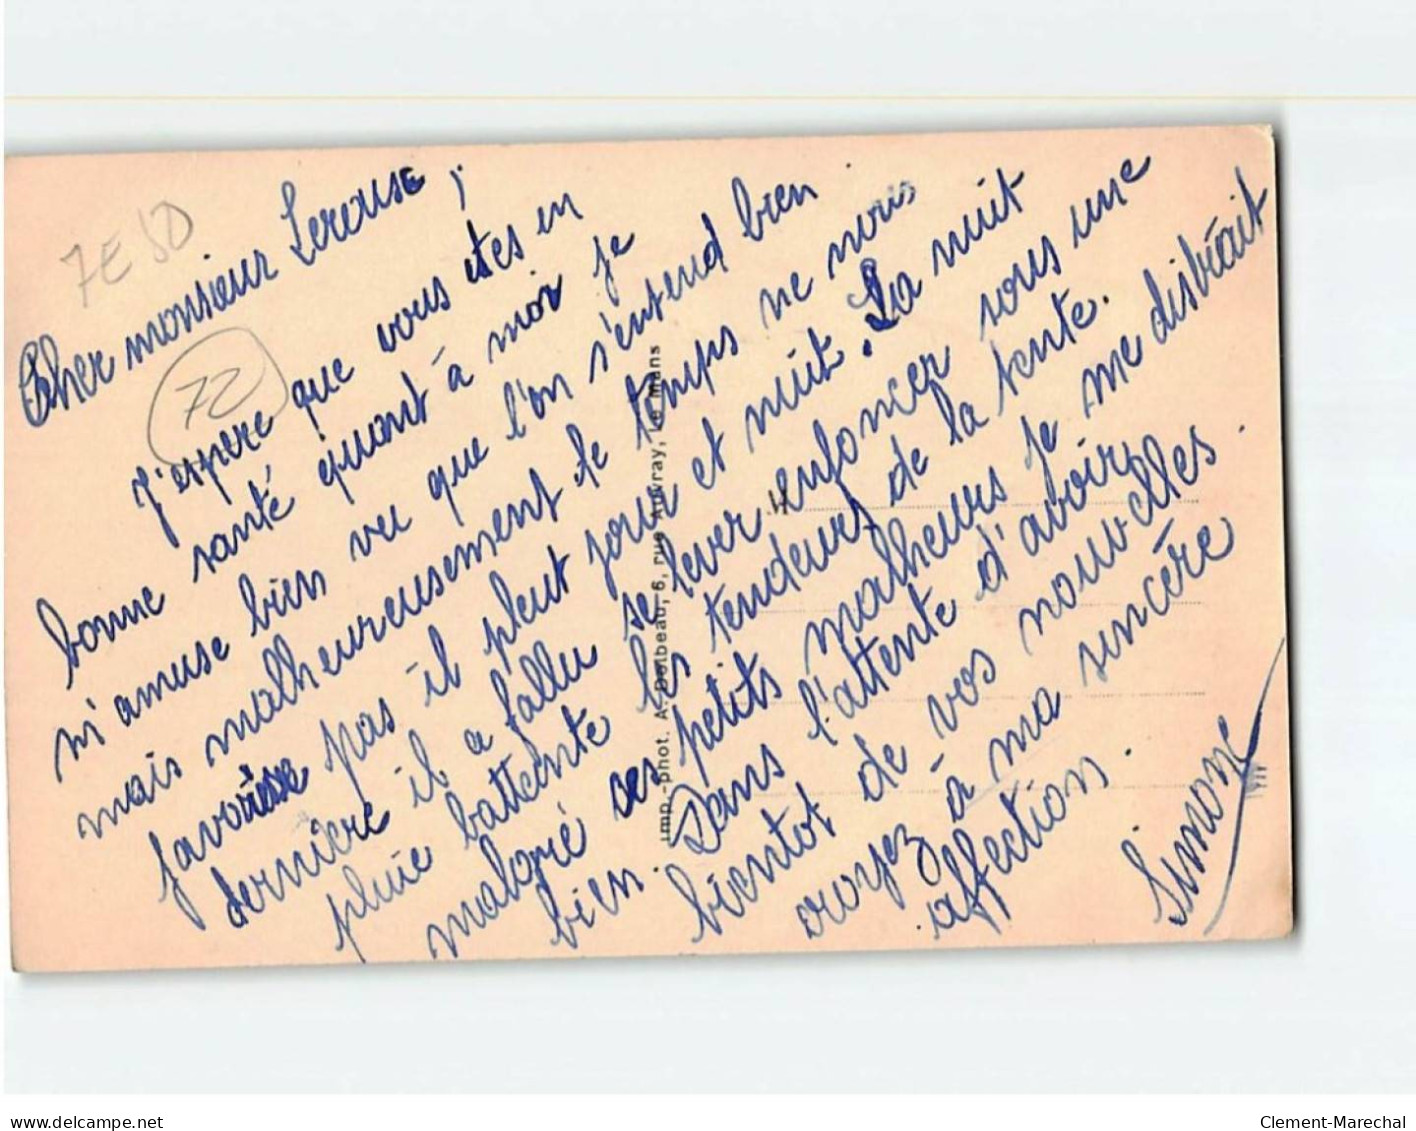 Cher monsieur Lerouse,
J'espere que vous etes en
bonne santé quant à moi je
m'amuse bien vu que l'on s'entend bien
mais malheureusement le temps ne nous
favorise pas il pleut jour et nuit. La nuit
dernière il a fallu se lever enfoncer sous une
pluie battente les tendeurs de la tente.
malgré ces petits malheurs je me distrait
bien. Dans l'attente d'avoir
bientot de vos nouvelles.
croyez à ma sincère
affection.
Simone
7E 50
72
imp.-phot. A. Dolbeau, 6, rue Auvray, Le Mans
delcampe.net
Clement-Marechal